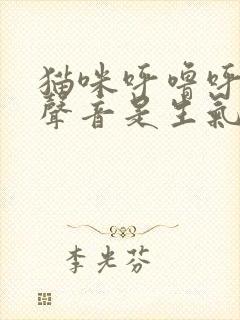 猫咪呼噜呼
聲音是生氣
李光芬